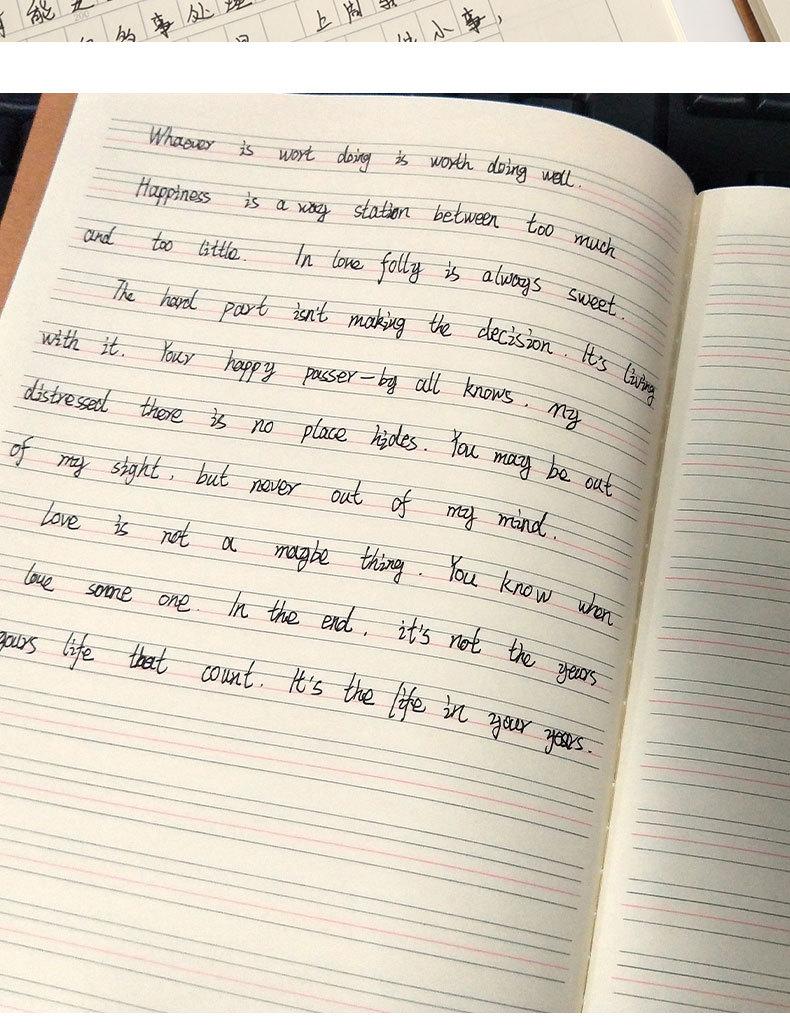 能
的事处理 上周
小事,
Whaever is wort doing is worth doing well.
Happiness is a way station between too much
and too little. In love folly is always sweet.
The hard part isn't making the decision. It's living
with it. Your happy passer-by all knows, my
distressed there is no place hides. You may be out
of my sight, but never out of my mind.
Love is not a maybe thing. You know when
love some one. In the end, it's not the years
yours life that count. It's the life in your years.